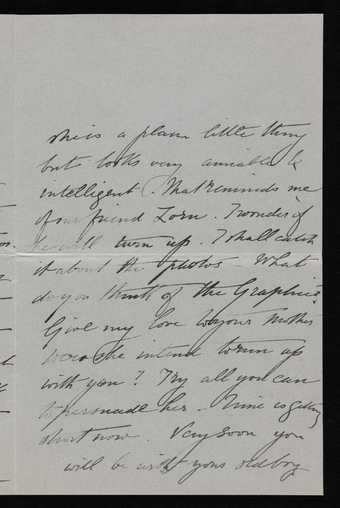 she is a plain little thing
but looks very amiable &
intelligent. That reminds me
of our friend Zorn. I wonder if
he will turn up. I shall catch
it about the photos. What
do you think of the Graphic?
Give my love to your Mother
does she intend to run up
with you? Try all you can
to persuade her. Time is getting
short now. Very soon you
will be with yours old boy